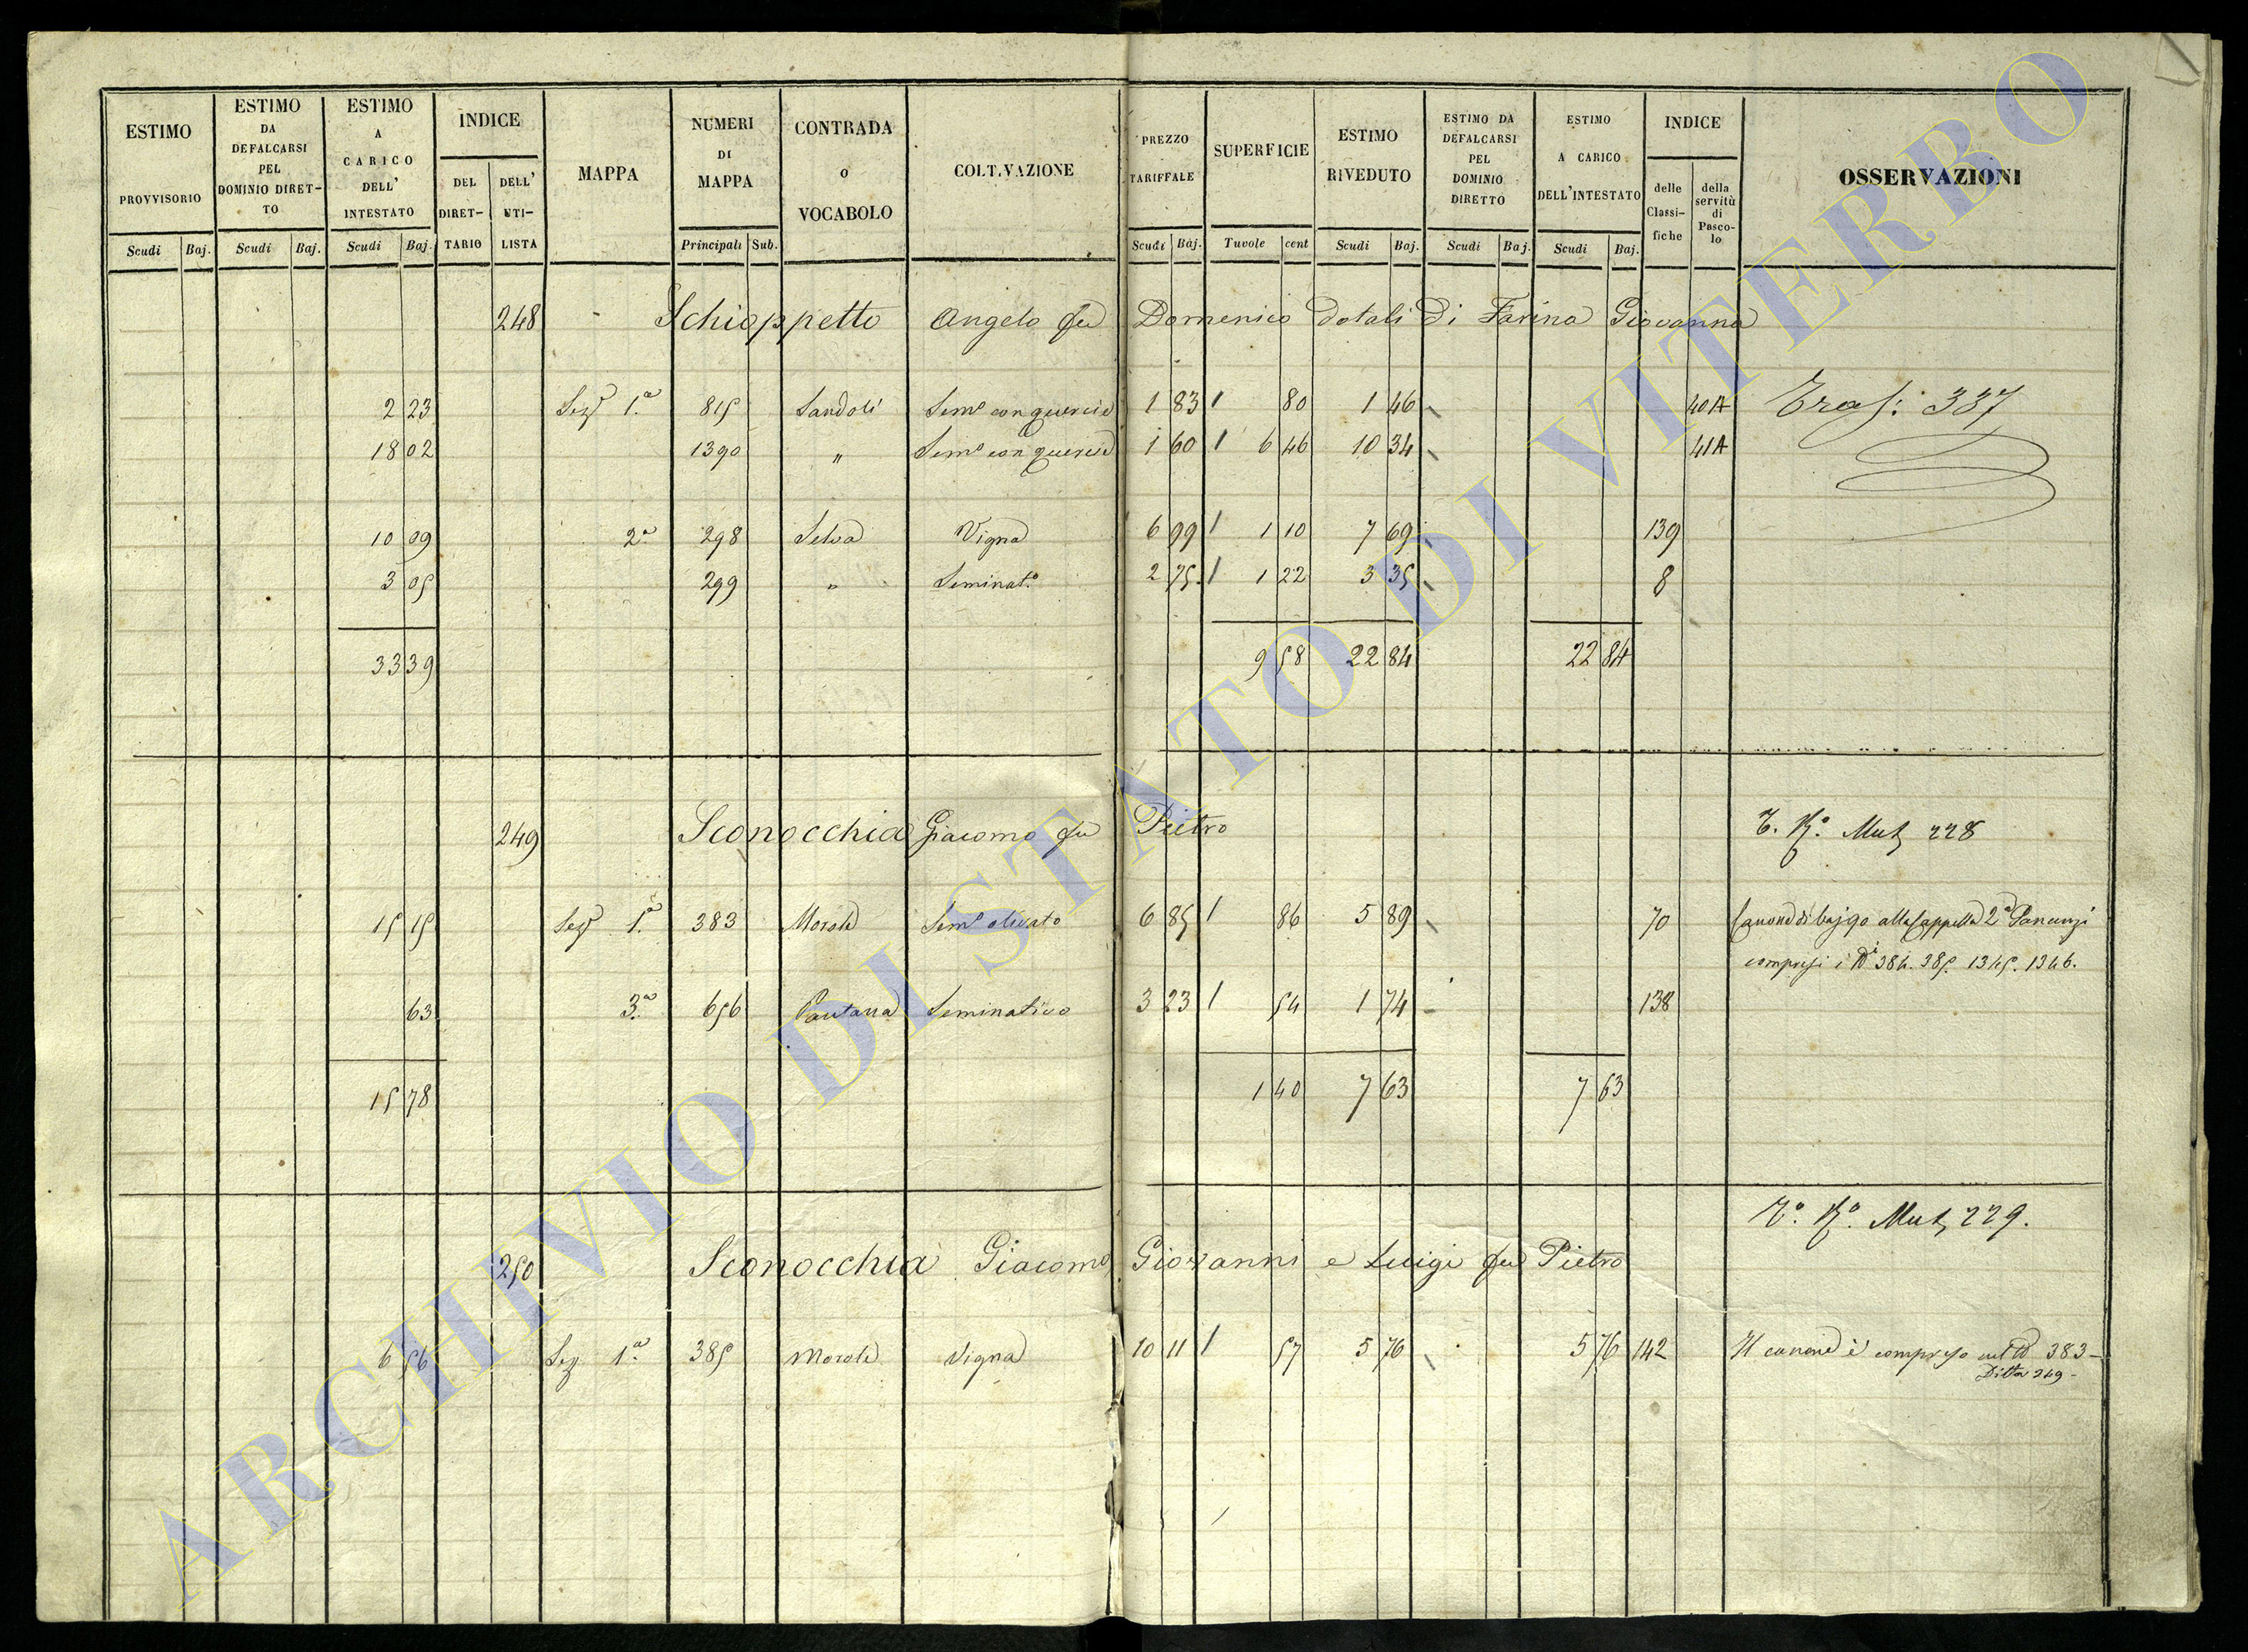 ESTIMO PROVVISORIO ESTIMO DA DEFALCARSI PEL DOMINIO DIRET-TO ESTIMO A CARICO DELL' INTESTATO INDICE DEL DIRET-TARIO DELL' UTI-LISTA MAPPA NUMERI DI MAPPA CONTRADA O VOCABOLO COLT.VAZIONE PREZZO TARIFFALE SUPERFICIE ESTIMO RIVEDUTO ESTIMO DA DEFALCARSI PEL DOMINIO DIRETTO ESTIMO A CARICO DELL'INTESTATO INDICE delle Classi-fiche della servitù di Pasco-lo OSSERVAZIONI
Scudi Baj. Scudi Baj. Scudi Baj. Principali Sub. Scudi Baj. Tavole cent Scudi Baj. Scudi Baj. Scudi Baj.
248 Schioppetto Angelo fu Domenico dotali di Farina Giovanna
2 23 Sezᵉ 1.ª 815 Sandoli Semᵒ con quercie 1 83 80 1 46 40A Tras: 337
18 02 1390 " Semᵒ con quercie 1 60 6 46 10 34 41A
10 09 2ª 298 Selva Vigna 6 99 1 10 7 69 139
3 05 299 " Seminatᵒ 2 75 1 22 3 35 8
33 39 9 58 22 84 22 84
249 Sconocchia Giacomo fu Pietro Mut 228
15 15 Sezᵉ 1.ª 383 Morole Semᵒ olivato 6 85 86 5 89 70 Canone di baj 90 alla Cappella 2ª
compresi i Nⁱ 384. 385. 1345. 1346.
63 3.ª 656 Pantana Seminativo 3 23 54 1 74 138
15 78 1 40 7 63 7 63
Mut 229.
250 Sconocchia Giacomo, Giovanni e Luigi fu Pietro
6 56 Sez 1.ª 385 Morole Vigna 10 11 57 5 76 5 76 142 Il canone è compreso nel Nᵒ 383 -
Ditta 249 -
ARCHIVIO DI STATO DI VITERBO